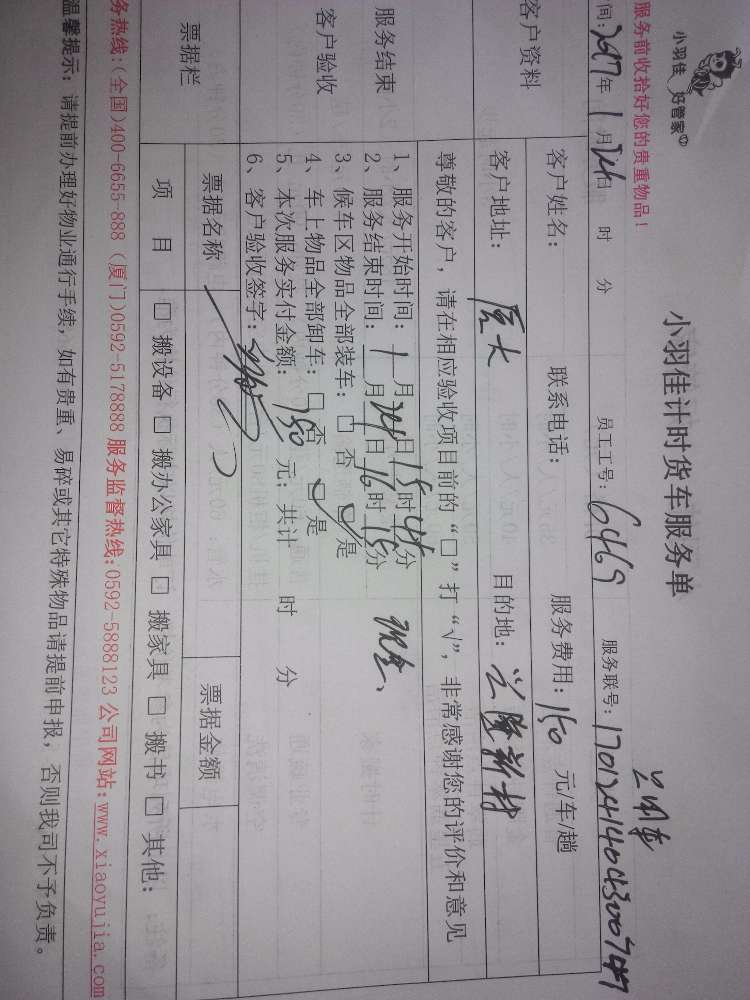 小羽佳 好管家
小羽佳计时货车服务单
服务前收拾好您的贵重物品！
间: 2017年 1月24日 时 分 员工工号: 6469 服务联号: 170124140430074
客户资料 客户姓名： 联系电话： 服务费用：150 元/车/趟
客户地址： 厦大 目的地： 兰陵新村
尊敬的客户，请在相应验收项目前的“□”打“√”，非常感谢您的评价和意见
服务结束
客户验收
1、服务开始时间：1月24日15时45分
2、服务结束时间：1月24日16时15分 现金、
3、候车区物品全部装车：□否 ☑是
4、车上物品全部卸车：□否 ☑是
5、本次服务实付金额：150元；共计 时 分
6、客户验收签字：
票据栏 票据名称 票据金额
项 目 □搬设备 □搬办公家具 □搬家具 □搬书 □其他：
务热线:(全国)400-6655-888 (厦门)0592-5178888 服务监督热线:0592-5888123 公司网站:www.xiaoyujia.com
温馨提示：请提前办理好物业通行手续，如有贵重、易碎或其它特殊物品请提前申报，否则我司不予负责。